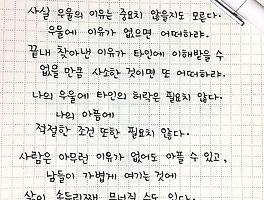 사실 우울의 이유는 중요치 않을지도 모른다.
우울에 이유가 없으면 어떠하랴.
끝내 찾아낸 이유가 타인에 이해받을 수
없을 만큼 사소한 것이면 또 어떠하랴.
나의 우울에 타인의 허락은 필요치 않다.
나의 아픔에
적절한 조건 또한 필요치 않다.
사람은 아무런 이유가 없어도 아플 수 있고,
남들이 가볍게 여기는 것에
삶이 송두리째 무너질 수도 있다.